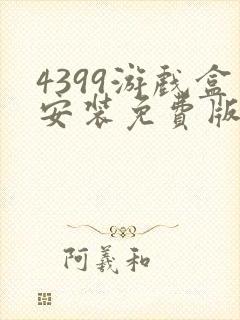 4399游戏盒
安装免費版
阿羲和